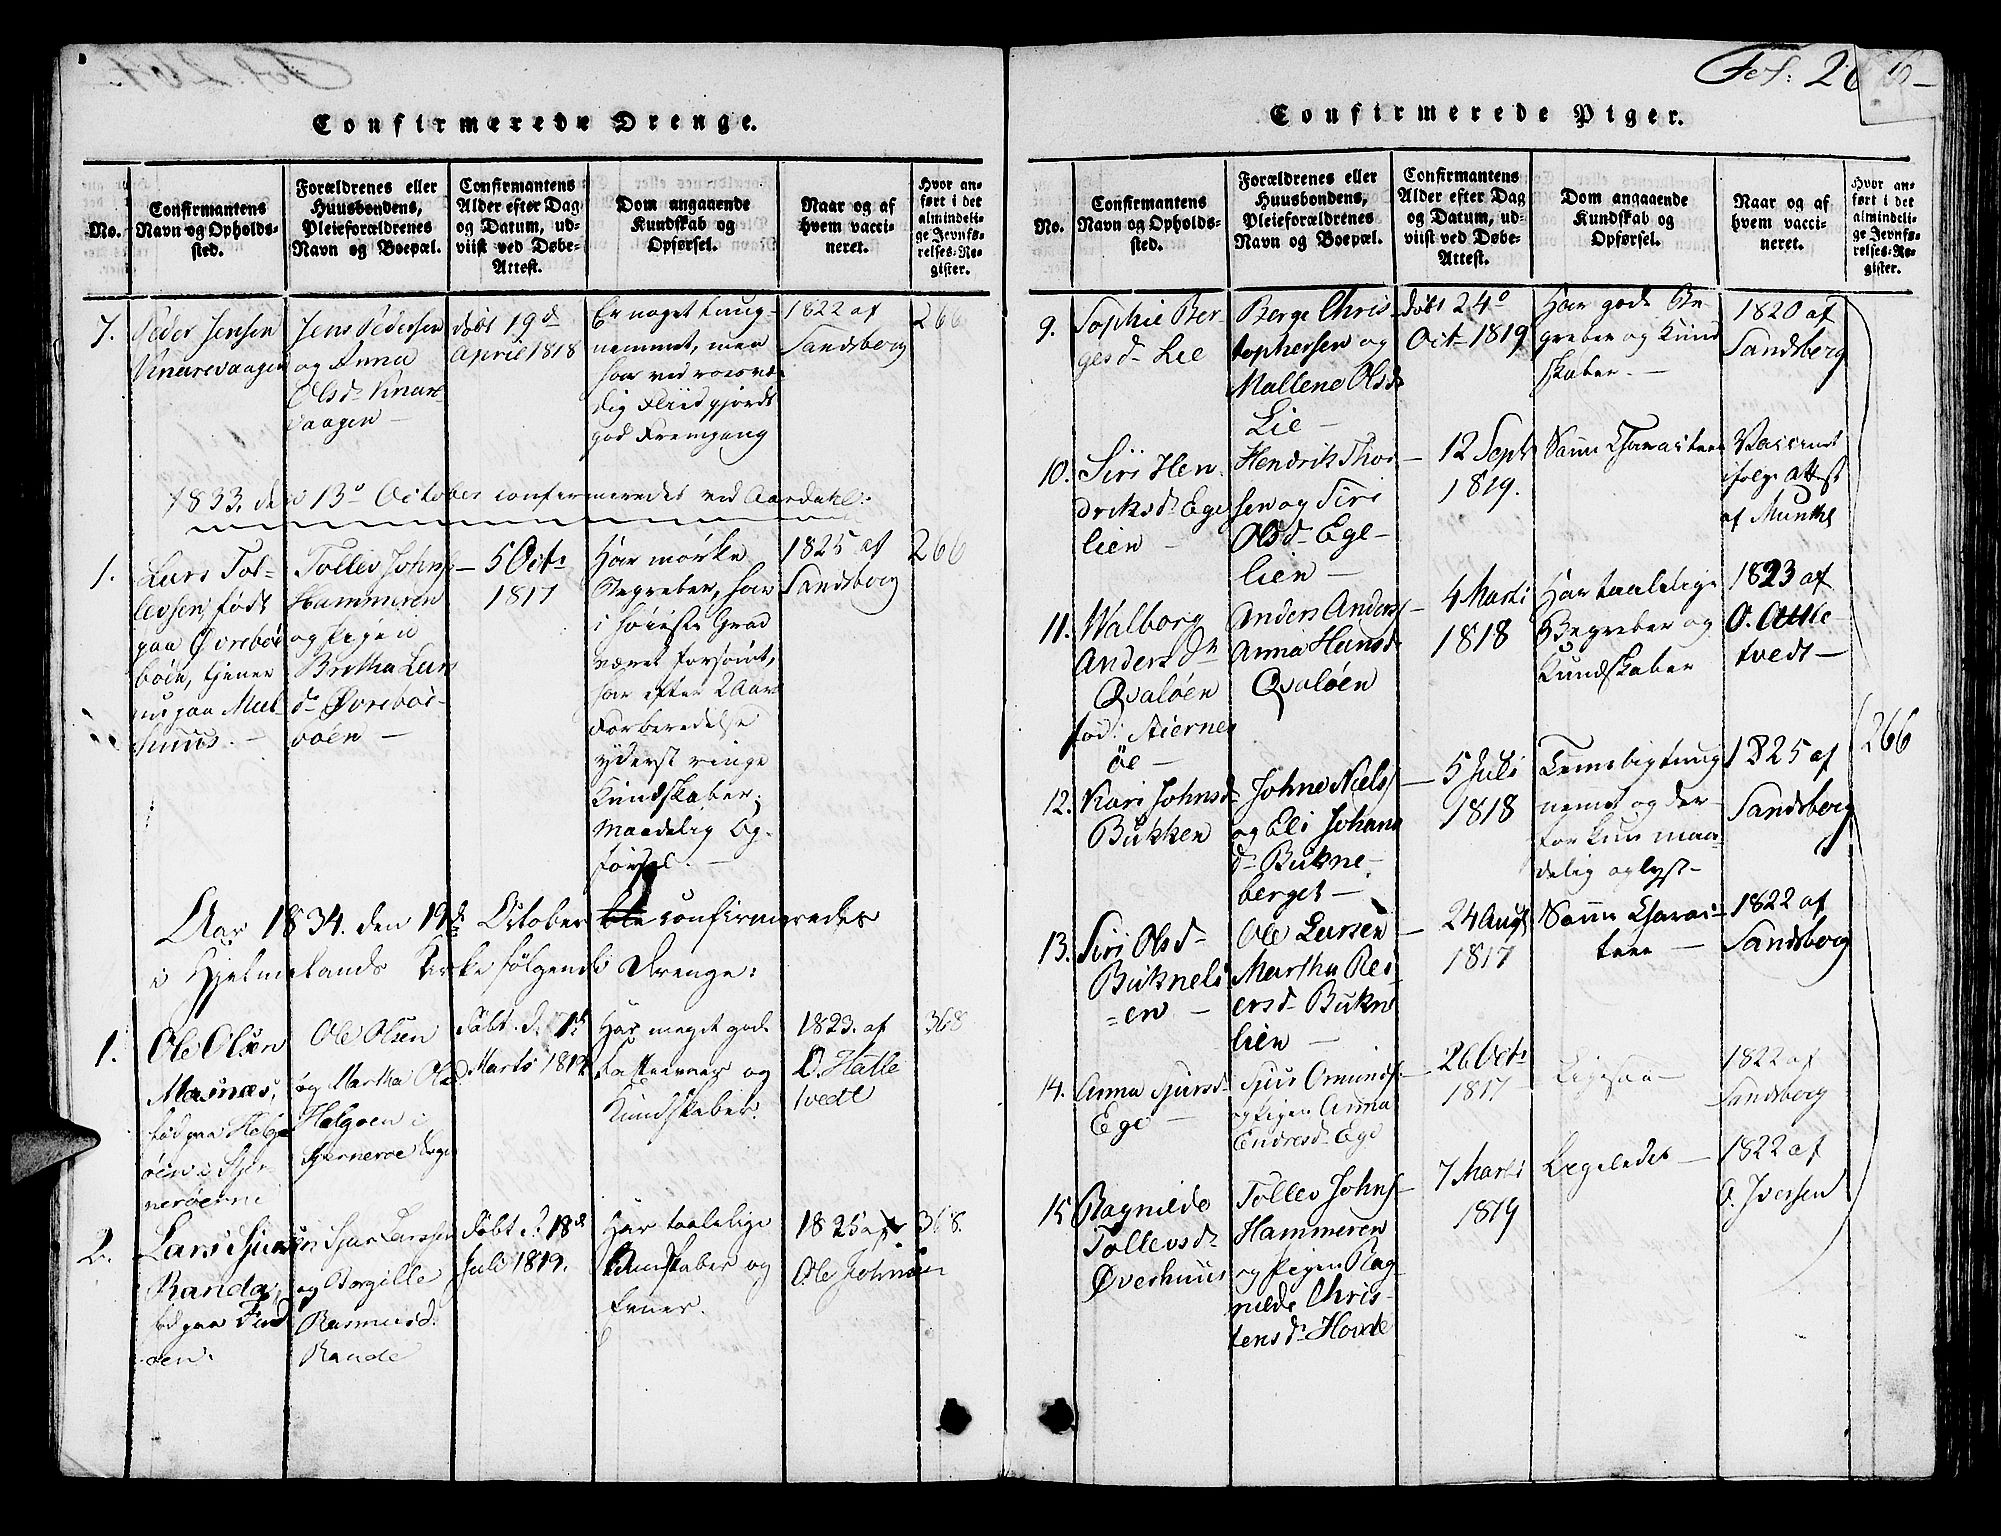 Confirmerede Drenge.
No.
Confirmantens
Navn og Opholds-
sted.
Forældrenes eller
Huusbondens,
Pleieforældrenes
Navn og Boepæl.
Confirmantens
Alder efter Dag
og Datum, ud-
viist ved Døbe-
Attest.
Dom angaaende
Kundskab og
Opførsel.
Naar og af
hvem vacci-
neret.
Hvor an-
ført i det
almindeli-
ge Jevnfø-
relses-Re-
gister.
7.
Peder Jensen
Knarevaagen
Jens Pedersen
og Anna
Olsd. Knar-
vaagen
døbt 19d
April 1818
Er noget tung-
nemmet, men
har ved roesvær-
dig Fliid gjordt
god Fremgang
1822 af
Sandsberg
266
1833, den 13de October confirmeredes ved Aardahl:
1.
Lars Tol-
levsen, født
paa Øvrebøe-
vöen, tjener
nu paa Mul-
huus.
Tollev Johns.
Hammeren
og Pigen
Britha Lars
d. Øvreböe-
vöen
5 Octr
1817
Har mørke
Begreber, har
i høieste Grad
været forsømt,
har efter 2 Aars
Forberedelse
yderst ringe
Kundskaber;
Maadelig Op-
førsel.
1825 af
Sandsberg
266
Aar 1834. den 19de October confirmeredes
i Hjelmelands Kirke følgende Drenge:
1.
Ole Olsen
Masnæs,
fød paa Helge
öen i Stjer
neröerne
Ole Olsen
og Martha Olsd.
Helgöen i
Stjerneröe Sogn
Døbt d. 21de
Marts 1819
Har meget gode
Evner og
Kundskaber.
1823. af
O. Hatle
tvedt
368
2.
Lars Sjursen
Randa,
fød paa Find
öen.
Sjur Larssen
og Borgille
Rasmusd.
Rande
Døbt d. 18de
Juli 1819.
Har taalelige
Kundskaber og
Evner.
1825 af
Ole Johnsen
368.
Fol: 26
Confirmerede Piger.
No.
Confirmantens
Navn og Opholds-
sted.
Forældrenes eller
Huusbondens,
Pleieforældrenes
Navn og Boepæl.
Confirmantens
Alder efter Dag
og Datum, ud-
viist ved Døbe-
Attest.
Dom angaaende
Kundskab og
Opførsel.
Naar og af
hvem vacci-
neret.
Hvor an-
ført i det
almindeli-
ge Jevnfø-
relses-Re-
gister.
9.
Sophie Ber-
gesd. Lie
Berge Chris-
tophersen og
Mallene Olsd.
Lie
døbt 24de
Oct. 1819
Har gode Be-
greber og Kund
skaber.
1820 af
Sandsberg
10.
Siri Hen
driksd. Ege
lien
Hendrik Thor
sen og Siri
Olsd. Ege-
lien
12 Septr
1819.
Samme Charakteer
Vaccineret
ifølge Attest
af Munthe
11.
Walborg
Andersdr
Qvalöen
fød: Stiernerö
öe
Anders Anders.
Anna Hansd.
Qvalöen
4 Marts
1818
Har taalelige
Begreber og
Kundskaber
1823 af
O. Atle-
tvedt
12.
Kari Johnsd.
Bukken
Johne Niels.
og Eli Johans
d. Bukne-
berget
5 Juli
1818
Temmelig tung
nemet og der-
for kun maa-
delig oplyst
1825 af
Sandsberg
266
13.
Siri Olsd.
Bukneli
=en
Ole Larsen
Martha Rei
ersd. Bukne
lien
24 Augt
1817
Samme Charac-
teer
1822 af
Sandsberg
14.
Anna Sjursd.
Ege
Sjur Omunds.
og Pigen Anna
Endresd. Ege
26 Octr
1817
Ligesaa
1822 af
Sandsberg
15
Ragnilde
Tollevsd.
Øverhuus
Tollev Johns.
Hammeren
og Pigen Rag
nilde Chris-
tensd. Hovde
7 Marts
1819
Ligeledes
1822 af
O. Iversen